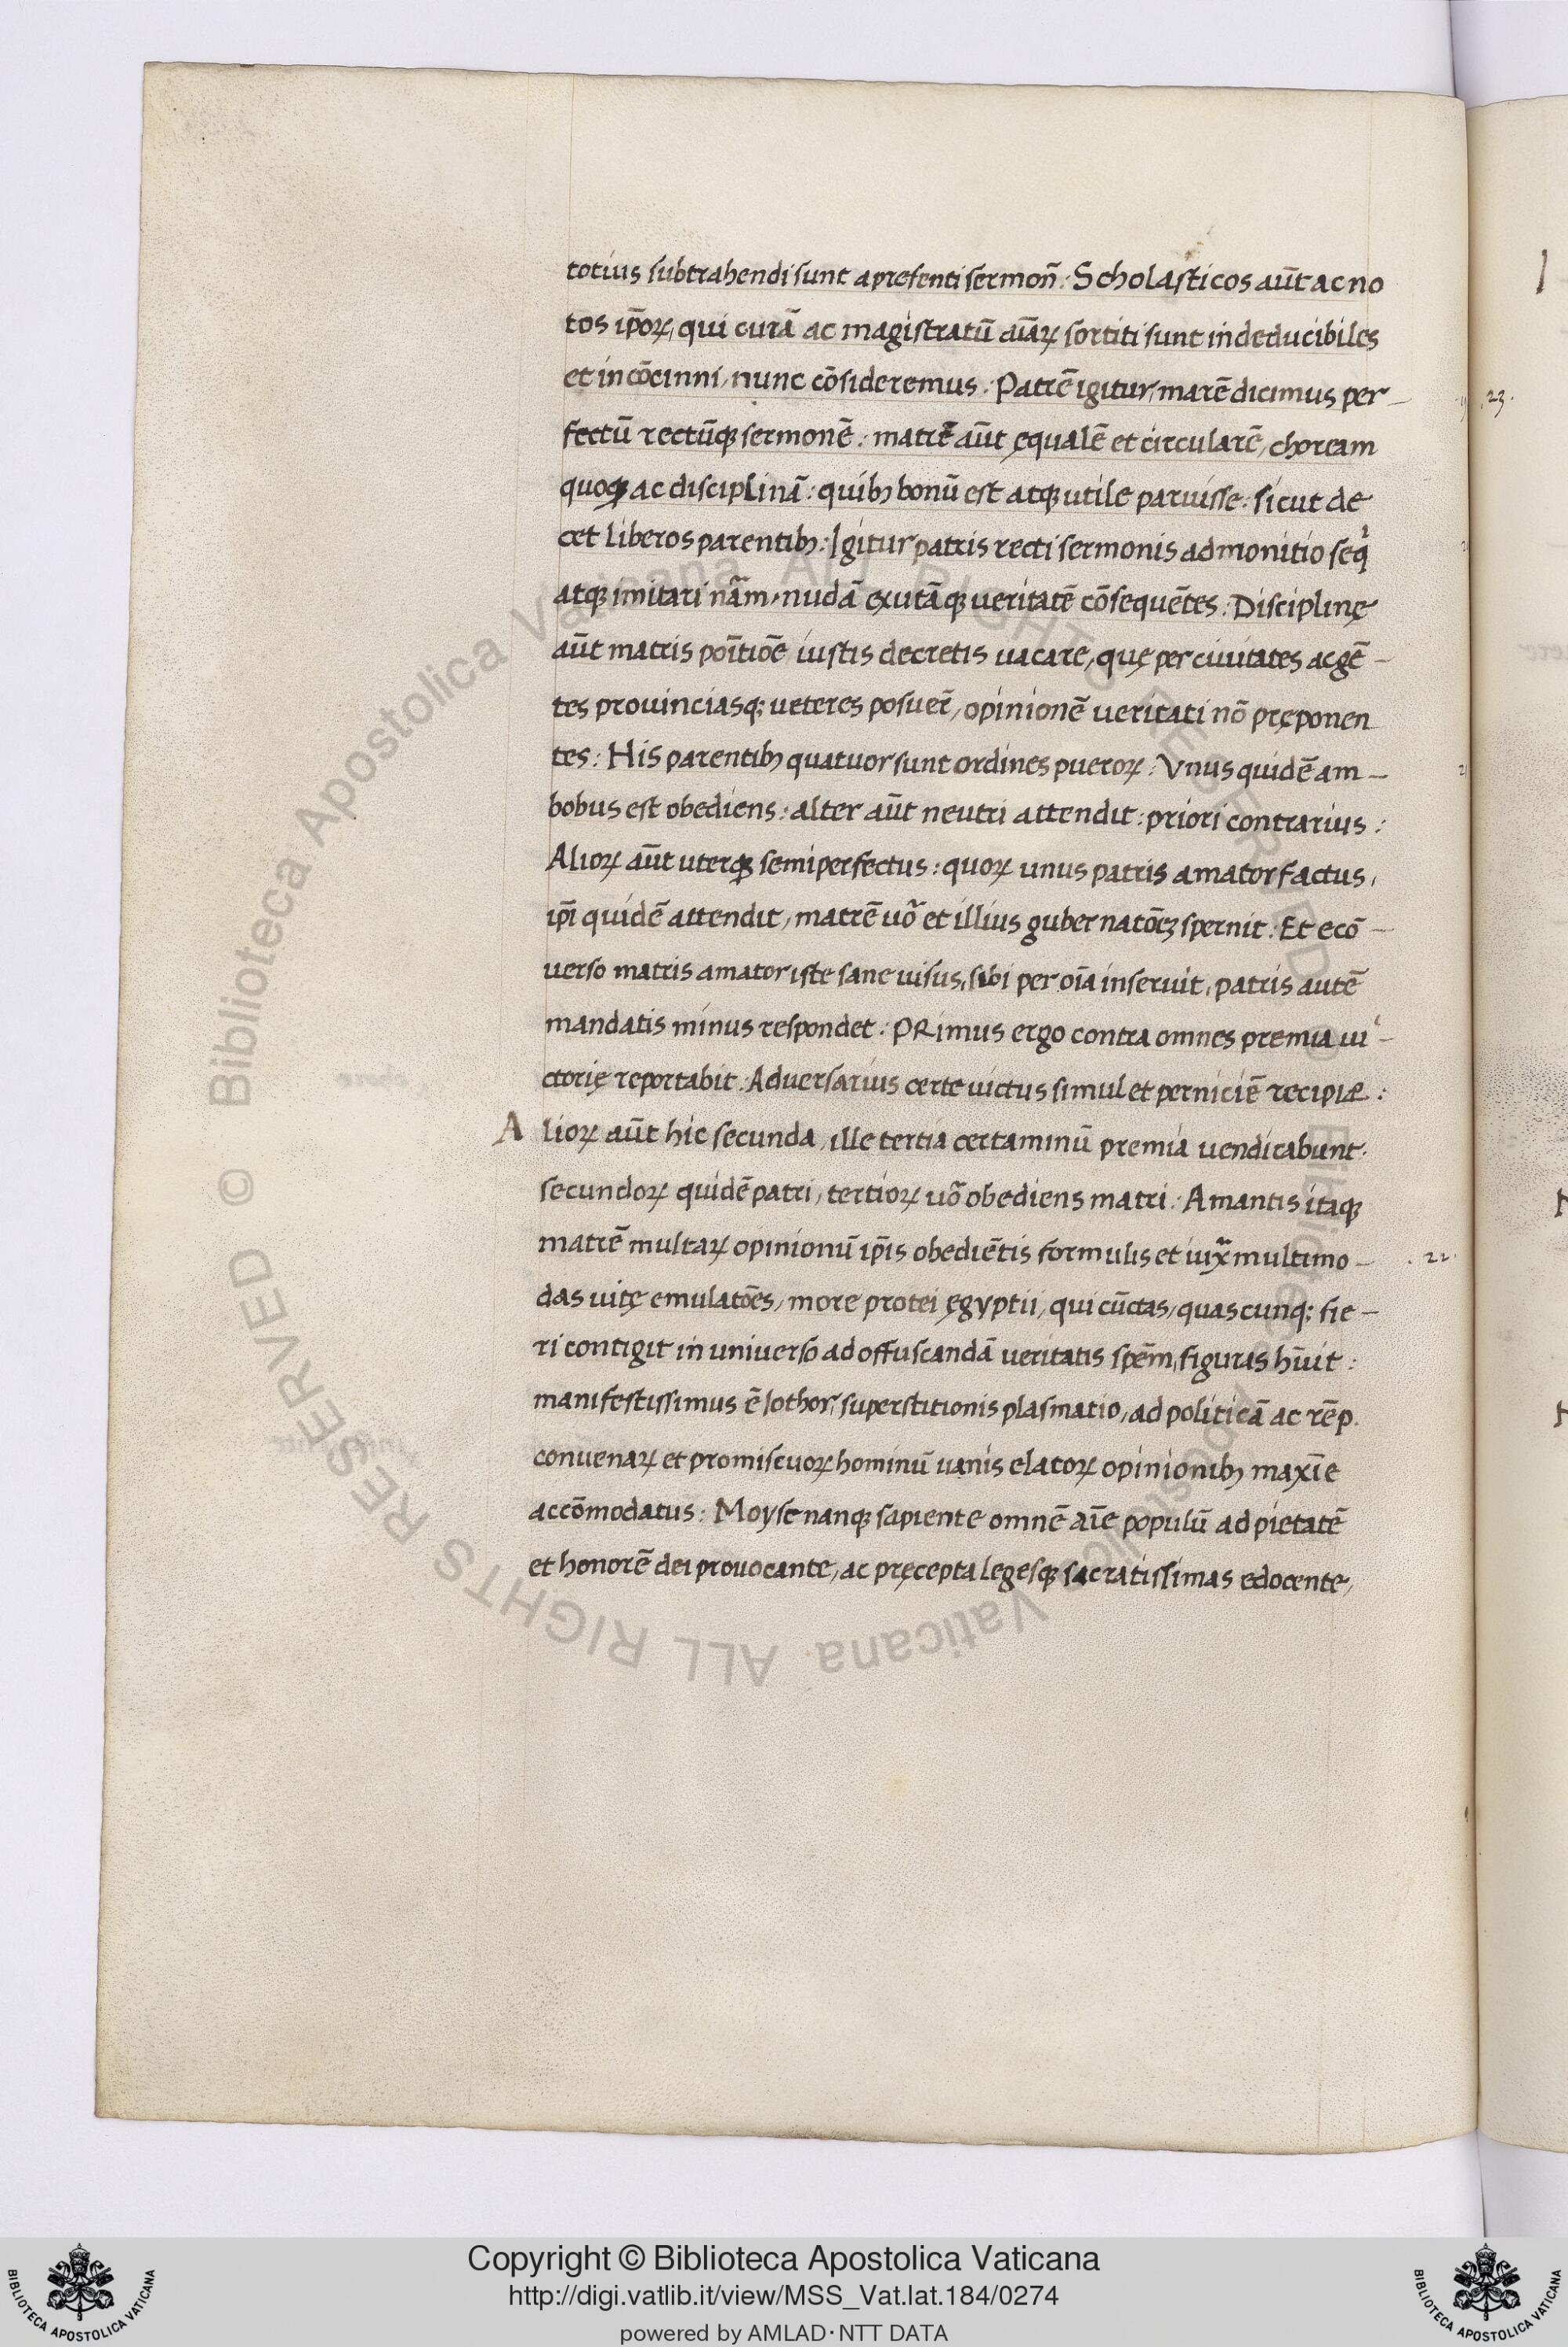 totius subtrahendi sunt a presenti sermoñ: Scholasticos aūt ac no
tos ip̄oꝝ, qui curā ac magistratū aīaꝝ sortiti sunt indeducibiles
et incōcinni, nunc cōsideremus: Patrē igitur, marē dicimus per-
fectū rectūqꝫ sermonē: matrē aūt ęqualē et circularē, choream
quoqꝫ ac disciplinā: quibꝫ bonū est atqꝫ utile paruisse: sicut de
cet liberos parentibꝫ: Igitur patris recti sermonis admonitio seqͥ
atqꝫ imitari nām, nudā exutāqꝫ veritatē cōsequētes: Disciplinę
aūt matris poītiōē iustis decretis uacare, quę per civitates ac gē-
tes provinciasqꝫ veteres posuer̄, opinionē veritati nō pręponen
tes: His parentibꝫ quatuor sunt ordines pueroꝝ: Vnus quidē am-
bobus est obediens: alter aūt neutri attendit: priori contrarius:
Alioꝝ aūt uterqꝫ semiperfectus: quoꝝ unus patris amator factus,
ip̄i quidē attendit, matrē uō et illius gubernatōeꝫ spernit: Et ecō-
verso matris amator iste sane visus, sibi per oīa inservit, patris autē
mandatis minus respondet: PRimus ergo contra omnes premia ui-
ctorię reportabit: Adversarius certe victus simul et perniciē recipiæ:
Alioꝝ aūt hic secunda, ille tertia certaminū premia vendicabunt.
secundoꝝ quidē patri, tertioꝝ uō obediens matri: Amantis itaqꝫ
matrē multaꝝ opinionū ip̄is obediētis formulis et iuxͣ multimo-
das vitę emulatōes, more protei ęgyptii, qui cūctas, quascunqꝫ fie-
ri contigit in universo ad offuscandā veritatis spēm, figuras hūit:
manifestissimus ē Iothor, superstitionis plasmatio, ad politicā ac rēp.
convenaꝝ et promiscuoꝝ hominū vanis elatoꝝ opinionibꝫ maxīe
accōmodatus: Moyse nanqꝫ sapiente omnē aīe populū ad pietatē
et honorē dei provocante, ac pręcepta legesqꝫ sacratissimas edocente,
.23.
.22.
Copyright © Biblioteca Apostolica Vaticana
http://digi.vatlib.it/view/MSS_Vat.lat.184/0274
powered by AMLAD·NTT DATA
BIBLIOTECA APOSTOLICA VATICANA
BIBLIOTECA APOSTOLICA VATICANA
© Biblioteca Apostolica Vaticana ALL RIGHTS RESERVED © Biblioteca Apostolica Vaticana ALL RIGHTS RESERVED